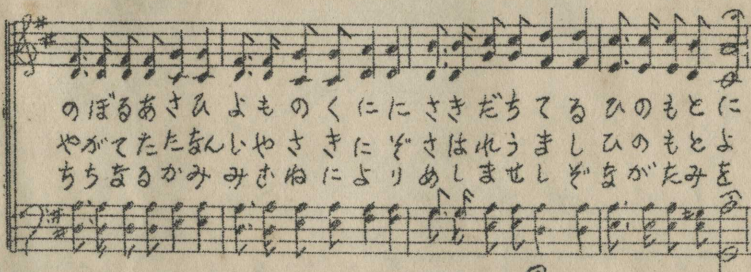 のぼるあさひ よものくににさきだちてるひのもとに
やがてたたなんいやさきにぞさはれうましひのもとよ
ちちなるかみみむねによりめしませしぞながたみを